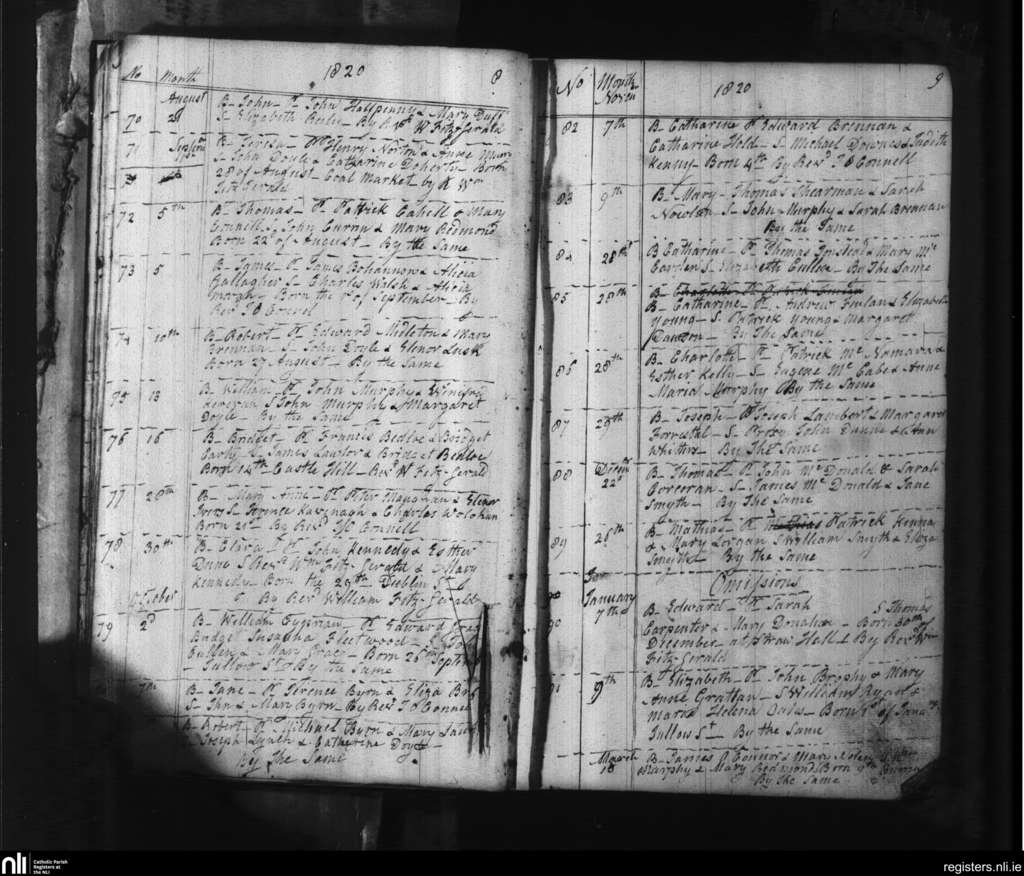 No Month 1820 8
August
70 28 B- John- P. John Halfpenny & Mary Duff
S- Elizabeth Butler- By R. Wm Fitzgerald
71 B- Teresa- P. Henry Norton & Anne
S- John Doyle & Catharine Doherty- Born
28 of August Coal Market- by R Wm
Fitz Gerald
72 5th B- Thomas- P. Patrick Cahell & Mary
Connell S. John Curran & Mary Redmond
Born 22d of August- By the Same
73 5 B- James- P. James Bohannon & Alicia
Gallagher S- Charles Walsh & Alicia
Born the 1st of September- By
Revd T O Connel
74 10th B- Robert- P. Edward Midleton & Mary
Brennan- S- John Doyle & Elenor Lusk
Born 27 August- By the Same
75 13 B- William- P. John Murphy & Winifred
S John Murphy & Margaret
Doyle- By the Same
76 16 B- Bridget- P. Francis Bedloe & Bridget
Early- S- James Lawlor & Bridget Bedloe
Born 14th Castle Hill- Revd W Fitz-Gerald
77 20th B- Mary Anne- P. Peter Manghan & Elinor
S- Terence Kavenagh & Charles Wolohan
Born 21st- By Revd T O Connell
78 30th B- Clara- P. John Kennedy & Esther
Dune S Revd Wm Fitz-Gerald & Mary
Kennedy- Born the 29th Dublin St
By Revd William Fitz-Gerald
October
79 2d B- William P. Edward
Budge Susanna Fleetwood-
Cullen & Mary Grace- Born 26th Septem
- Tullow St By the Same
7th B- Jane- P. Terence Byrn & Eliza
S- & Mary Byrn- By Revd T O Connell
B- Robert- P. Michael Byrn & Mary
S- Joseph Lynch & Catherine Doyle-
By the Same
No Month 1820 9
Noven
82 7th B- Catharine P. Edward Brennan &
Catharine Hold- S- Michael Downes & Judith
Kenny Born 4th By Revd T O Connell
83 9th B- Mary- Thomas Shearman & Sarah
Nowlan S- John Murphy & Sarah Brennan
By the Same
84 28th B Catharine- P. Thomas & Mary Mc
S- Elizabeth Cullen- By The Same
85 28th B-
B- Catharine- P. Andrew Furlan & Elizabeth
Young- S- Patrick Young & Margaret
Dawson- By The Same
86 28th B- Charlotte- P. Patrick Mc Nomara &
Esther Kelly- S- Eugene Mc Cabe & Anne
Maria Murphy By the Same
87 29th B- Joseph- P. Joseph Lambert & Margaret
Forrestal- S- John Dunne & Ann
By The Same
88 Decem 22d B- Thomas- P. John Mc Donald & Sarah
Corcoran- S- James Mc Donald & Jane
Smyth- By The Same
89 26th B- Mathias- P. Patrick Kenna
& Mary Lorgan S William Smyth & Eliza
Smyth By the Same
Jan Omissions
90 January 7th B- Edward- P. Sarah S Thomas
Carpenter & Mary Donahue- Born 30th of
December- at Straw Hall & By Revd Wm
Fitz Gerald
91 9th B- Elizabeth- P. John Brophy & Mary
Anne Grattan- S William Ryan &
Maria Helena Born 1st of Janry
Tullow St- By the Same
March
18 B- James P. Connor & Mary Nolan
Murphy & Mary Redmond Born 9th
By the Same
nli Catholic Parish
Registers at
the NLI
registers.nli.ie